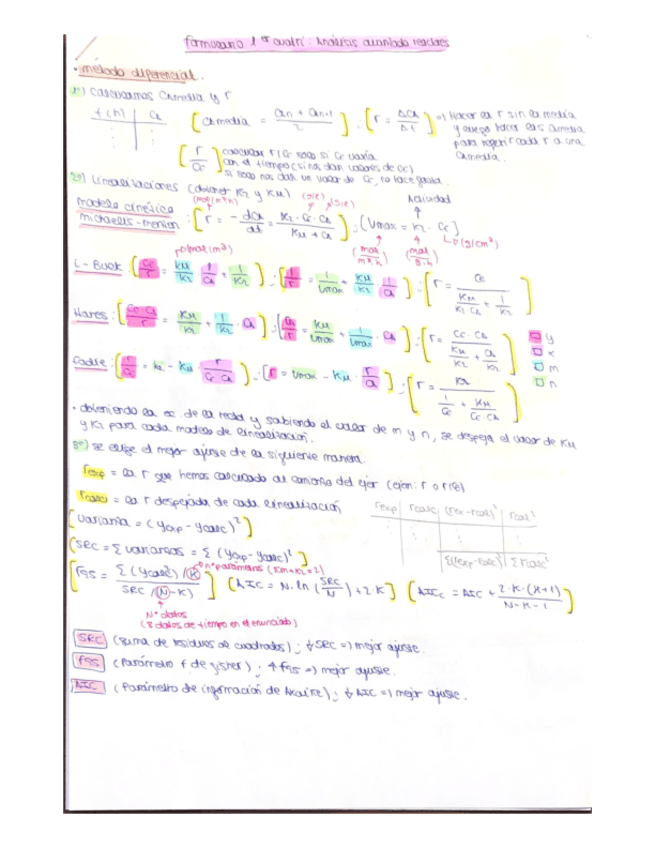 formulario 1er cuatri: Análisis avanzado reactores
• método diferencial.
1º) calculamos CAmedia y r
t(h) | CA
[CAmedia = (an + an+1)/2] ; [r = ΔCA/Δt] =) Hacer la r sin la media
y luego hacer las CAmedia
para repetir cada r a una
CAmedia.
[r/Cc] calcular r/Cc solo si Cc varía
con el tiempo (si nos dan valores de Cc)
si solo nos dan un valor de Cc, no hace falta.
2º) Linealizaciones (obtener K2 y KM)
modelo cinético
michaelis-menten : [r = - dCA/dt = K2 · Cc · CA / (KM + CA)] ; (Vmax = K2 · Cc)
Actividad
(mol/m³·h)
(g/cm³)
L-Burk : [Cc/r = KM/K2 · 1/CA + 1/K2] ; [1/r = 1/Vmax + KM/Vmax · 1/CA] ; [r = Cc / (KM/(K2·CA) + 1/K2)]
Hanes : [Cc·CA/r = KM/K2 + 1/K2 · CA] ; [CA/r = KM/Vmax + 1/Vmax · CA] ; [r = Cc·CA / (KM/K2 + CA/K2)]
Eadie : [r/Cc = K2 - KM · r/(Cc·CA)] ; [r = Vmax - KM · r/CA] ; [r = K2 / (1/Cc + KM/(Cc·CA))]
y
x
m
n
• obteniendo la ec. de la recta y sabiendo el valor de m y n, se despeja el valor de KM
y K2 para cada modelo de linealización.
3º) se elige el mejor ajuste de la siguiente manera:
rexp = la r que hemos calculado al comienzo del ejer (ejem: r o r/Cc)
rcalc = la r despejada de cada linealización
rexp | rcalc | (rex-rcal)² | rcal²
Σ(rexp-rcalc)² | Σ rcalc²
[varianza = (yexp - ycalc)²]
[SRC = Σ varianzas = Σ (yexp - ycalc)²]
nº parámetros (KM + K2 = 2)
[F95 = (Σ (ycalc²) / K) / (SRC / (N - K))] [AIC = N · ln (SRC/N) + 2·K] [AICc = AIC + 2·K·(K+1)/(N-K-1)]
Nº datos
(8 datos de tiempo en el enunciado)
SRC (suma de residuos al cuadrados) ; ↓ SRC =) mejor ajuste.
F95 (Parámetro F de Fisher) ; ↑ F95 =) mejor ajuste.
AIC (Parámetro de información de Akaike) ; ↓ AIC =) mejor ajuste.